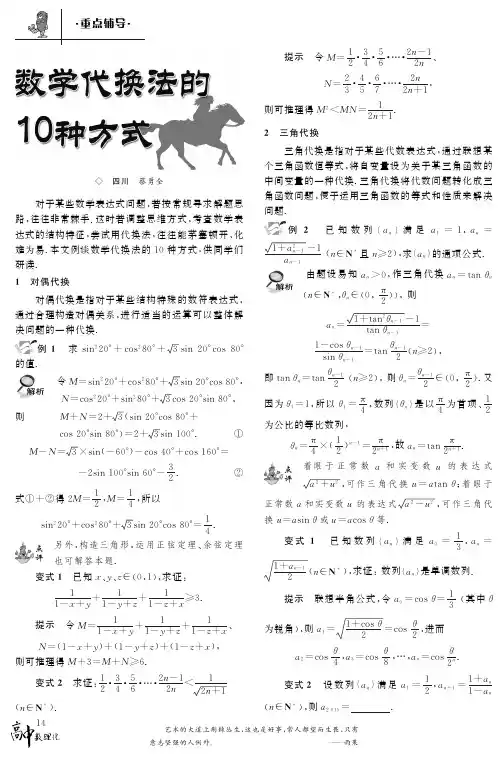 ·重点辅导·
数学代换法的
10种方式
◇ 四川 蔡勇全
对于某些数学表达式问题,若按常规寻求解题思
路,往往非常棘手.这时若调整思维方式,考查数学表
达式的结构特征,尝试用代换法,往往能茅塞顿开,化
难为易.本文例谈数学代换法的 10 种方式,供同学们
研读.
1 对偶代换
对偶代换是指对于某些结构特殊的数符表达式,
通过合理构造对偶关系,进行适当的运算可以整体解
决问题的一种代换.
例 1 求 sin²20°+cos²80°+√3 sin 20°cos 80°
的值.
解析 令M=sin²20°+cos²80°+√3 sin 20°cos 80°,
N=cos²20°+sin²80°+√3 cos 20°sin 80°,
则 M+N=2+√3(sin 20°cos 80°+
cos 20°sin 80°)=2+√3 sin 100°. ①
M-N=√3×sin(-60°)-cos 40°+cos 160°=
-2sin 100°sin 60°-3/2. ②
式①+②得 2M=1/2,M=1/4,所以
sin²20°+cos²80°+√3 sin 20°cos 80°=1/4.
点评 另外,构造三角形,运用正弦定理、余弦定理
也可解答本题.
变式 1 已知 x、y、z∈(0,1),求证:
1/(1-x+y)+1/(1-y+z)+1/(1-z+x)≥3.
提示 令 M=1/(1-x+y)+1/(1-y+z)+1/(1-z+x)、
N=(1-x+y)+(1-y+z)+(1-z+x),
则可推理得 M+3=M+N≥6.
变式 2 求证:1/2·3/4·5/6·…·(2n-1)/2n<1/√(2n+1)
(n∈N*).
提示 令 M=1/2·3/4·5/6·…·(2n-1)/2n、
N=2/3·4/5·6/7·…·2n/(2n+1),
则可推理得 M²<MN=1/(2n+1).
2 三角代换
三角代换是指对于某些代数表达式,通过联想某
个三角函数恒等式,将自变量设为关于某三角函数的
中间变量的一种代换.三角代换将代数问题转化成三
角函数问题,便于运用三角函数的等式和性质来解决
问题.
例 2 已知数列{aₙ}满足 a₁=1,aₙ=
(√(1+a²ₙ₋₁)-1)/aₙ₋₁ (n∈N*且 n≥2),求{aₙ}的通项公式.
解析 由题设易知 aₙ>0,作三角代换 aₙ=tan θₙ
(n∈N*,θₙ∈(0,π/2)),则
aₙ=(√(1+tan²θₙ₋₁)-1)/tan θₙ₋₁=
(1-cos θₙ₋₁)/sin θₙ₋₁=tan θₙ₋₁/2(n≥2),
即 tan θₙ=tan θₙ₋₁/2 (n≥2),则 θₙ=θₙ₋₁/2∈(0,π/2).又
因为 θ₁=1,所以 θ₁=π/4,数列{θₙ}是以π/4为首项、1/2
为公比的等比数列,
θₙ=π/4×(1/2)ⁿ⁻¹=π/2ⁿ⁺¹,故 aₙ=tan π/2ⁿ⁺¹.
点评 着眼于正常数 a 和实变数 u 的表达式
√(a²+u²),可作三角代换 u=atan θ;着眼于
正常数 a 和实变数 u 的表达式√(a²-u²),可作三角代
换 u=asin θ或 u=acos θ等.
变式 1 已知数列{aₙ}满足 a₀=1/3,aₙ=
√((1+aₙ₋₁)/2)(n∈N*),求证:数列{aₙ}是单调数列.
提示 联想半角公式,令 a₀=cos θ=1/3 (其中 θ
为锐角),则 a₁=√((1+cos θ)/2)=cos θ/2,进而
a₂=cos θ/4,a₃=cos θ/8,…,aₙ=cos θ/2ⁿ.
变式 2 设数列{aₙ}满足 a₁=1/2,aₙ₊₁=(1+aₙ)/(1-aₙ)
(n∈N*),则
14
高中数理化
艺术的大道上荆棘丛生,这也是好事,常人都望而生畏,只有
意志坚强的人例外. ——雨果